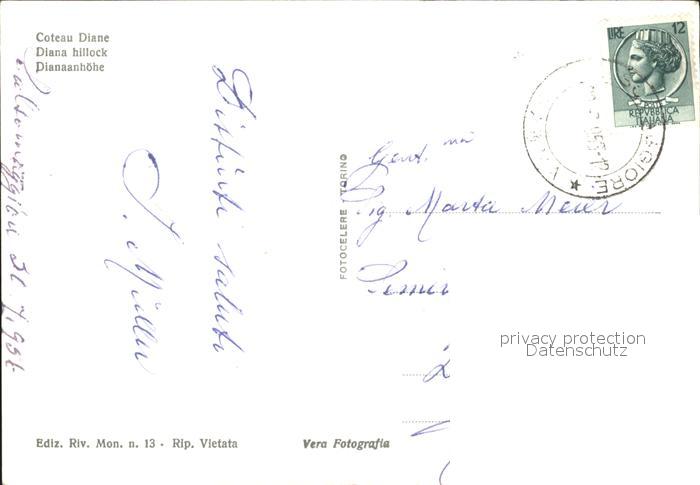 Coteau Diane
Diana hillock
Dianaanhöhe
Salsomaggiore 31
Distinti saluti
J. Müller
FOTOCELERE TORINO
LIRE 12
REPVBBLICA
ITALIANA
GGIORE
Gent.ma
Sig. Marta Meier
privacy protection
Datenschutz
Ediz. Riv. Mon. n. 13 - Rip. Vietata
Vera Fotografia